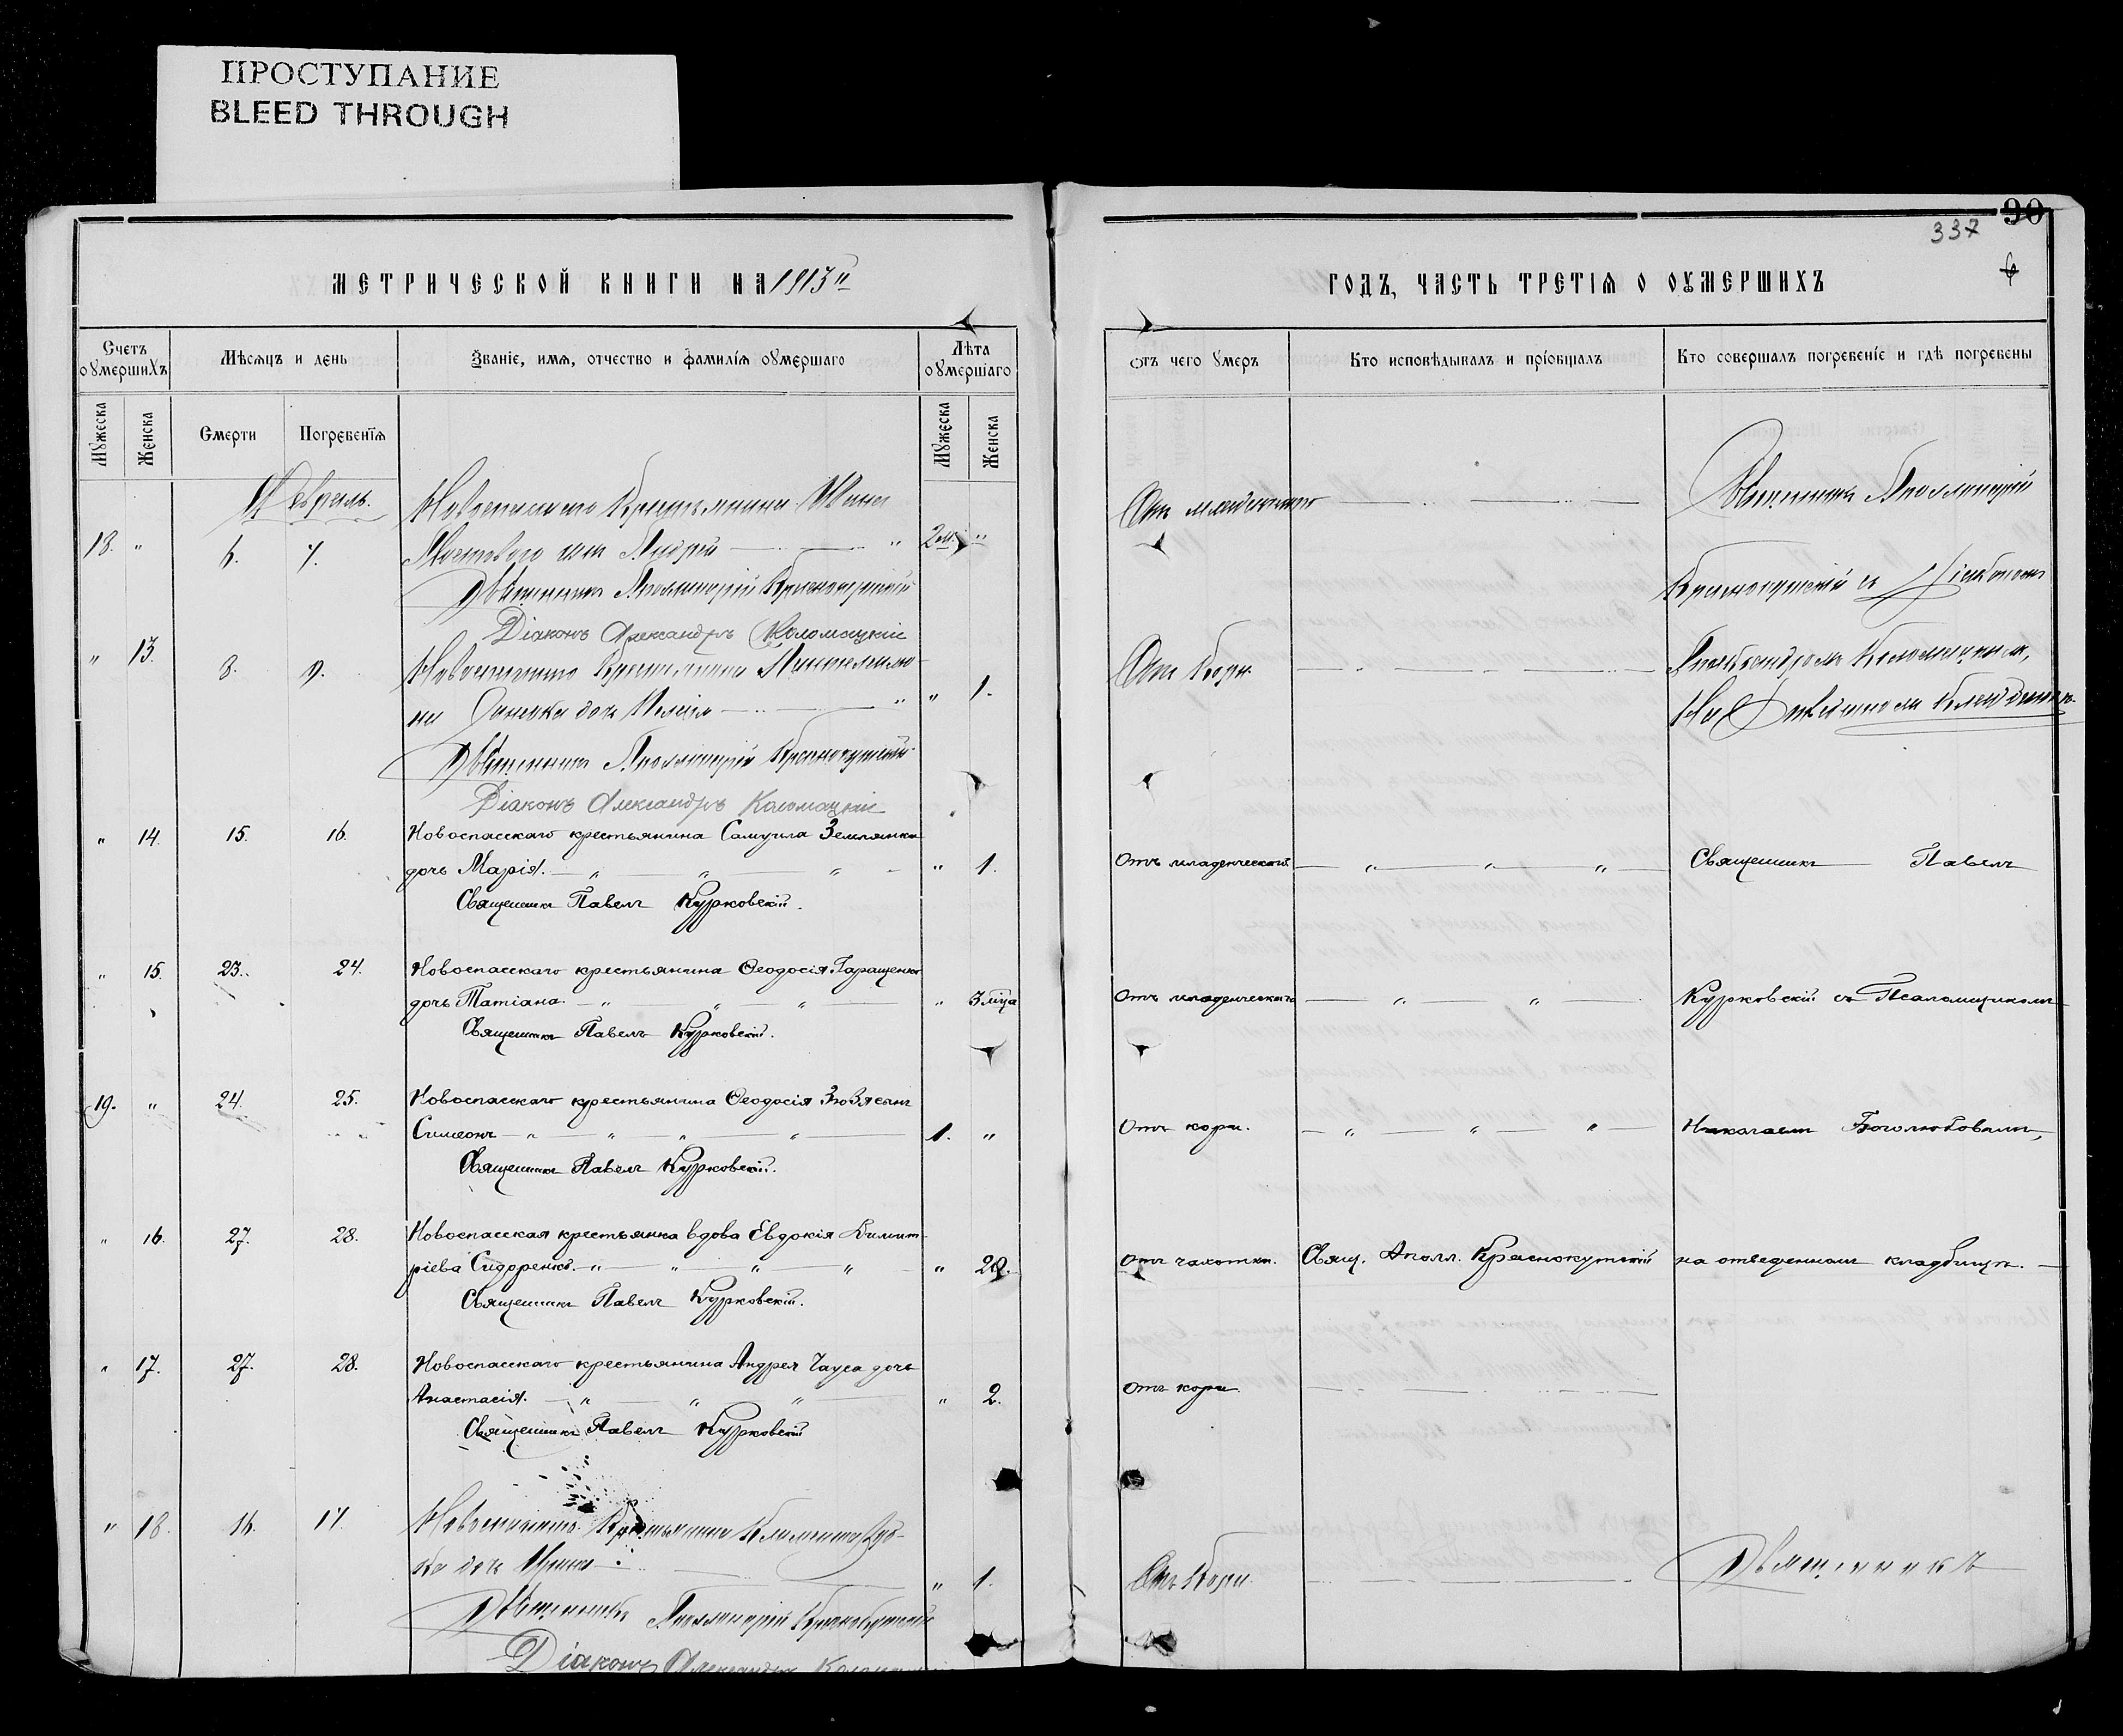 ПРОСТУПАНИЕ
BLEED THROUGH
90
337
МЕТРИЧЕСКОЙ КНИГИ НА 1913 ГОДЪ, ЧАСТЬ ТРЕТІЯ О ОУМЕРШИХЪ
Счетъ оумершихъ
Мѣсяцъ и день
Званіе, имя, отчество и фамилія оумершаго
Лѣта оумершаго
Отъ чего умеръ
Кто исповѣдывалъ и пріобщалъ
Кто совершалъ погребеніе и гдѣ погребены
Мужеска
Женска
Смерти
Погребенія
Мужеска
Женска
Февраль.
Новоспасскаго Крестьянина Ивана
Отъ младенческаго
Священникъ Аполлинарій
18. " 6. 7. сынъ Андрей " 2 м. "
Священникъ Аполлинарій Краснокутскій
Краснокутскій съ Діакономъ
Діаконъ Александръ Коломацкій
" 13. 8. 9. Новоспасскаго Крестьянина Пантелеимо-
Отъ Кори.
Александромъ Коломацкимъ,
на дочь " " 1.
На Отведенномъ Кладбищѣ.
Священникъ Аполлинарій Краснокутскій
Діаконъ Александръ Коломацкій
" 14. 15. 16. Новоспасскаго крестьянина Самуила Землянки
дочь Марія. " " " " 1.
Отъ младенческой " " "
Священникъ Павелъ
Священникъ Павелъ Курковскій.
" 15. 23. 24. Новоспасскаго крестьянина Ѳеодосія Гаращенко
дочь Татіана. " " " " 3 м͠ца
Отъ младенческой " "
Курковскій съ Псаломщикомъ
Священникъ Павелъ Курковскій.
19. " 24. 25. Новоспасскаго крестьянина Ѳеодосія Зюзя сынъ
Симеонъ " " " " 1. "
Отъ кори. " " "
Николаемъ Боголюбовымъ,
Священникъ Павелъ Курковскій.
" 16. 27. 28. Новоспасская крестьянка вдова Евдокія Димит-
ріева Сидоренко. " " " " "
Отъ чахотки. Свящ. Аполл. Краснокутскій
на отведенномъ кладбищѣ.
Священникъ Павелъ Курковскій.
" 17. 27. 28. Новоспасскаго крестьянина Андрея Чауса дочь
Анастасія. " " " " 2.
Отъ кори.
Священникъ Павелъ Курковскій
" 18. 16. 17. Новоспасскаго Крестьянина Климента
дочь Ирина " 1.
Отъ Кори.
Священникъ
Священникъ Аполлинарій Краснокутскій
Діаконъ Александръ